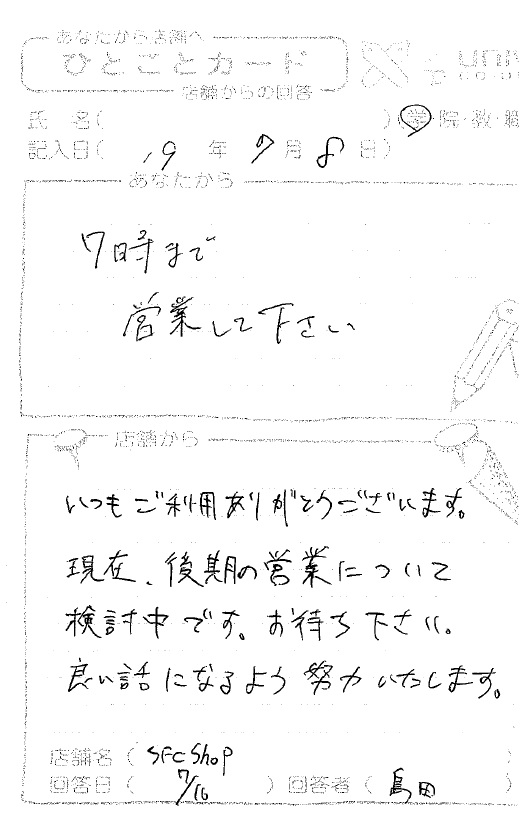 あなたから店舗へ
ひとことカード
店舗からの回答
氏 名( ) (学・院・教・職
記入日( '19 年 7 月 8 日)
あなたから
7時まで
営業して下さい
店舗から
いつもご利用ありがとうございます。
現在、後期の営業について
検討中です。お待ち下さい。
良い話になるよう努力いたします。
店舗名( SFC Shop )
回答日( 7/16 ) 回答者( 島田 )